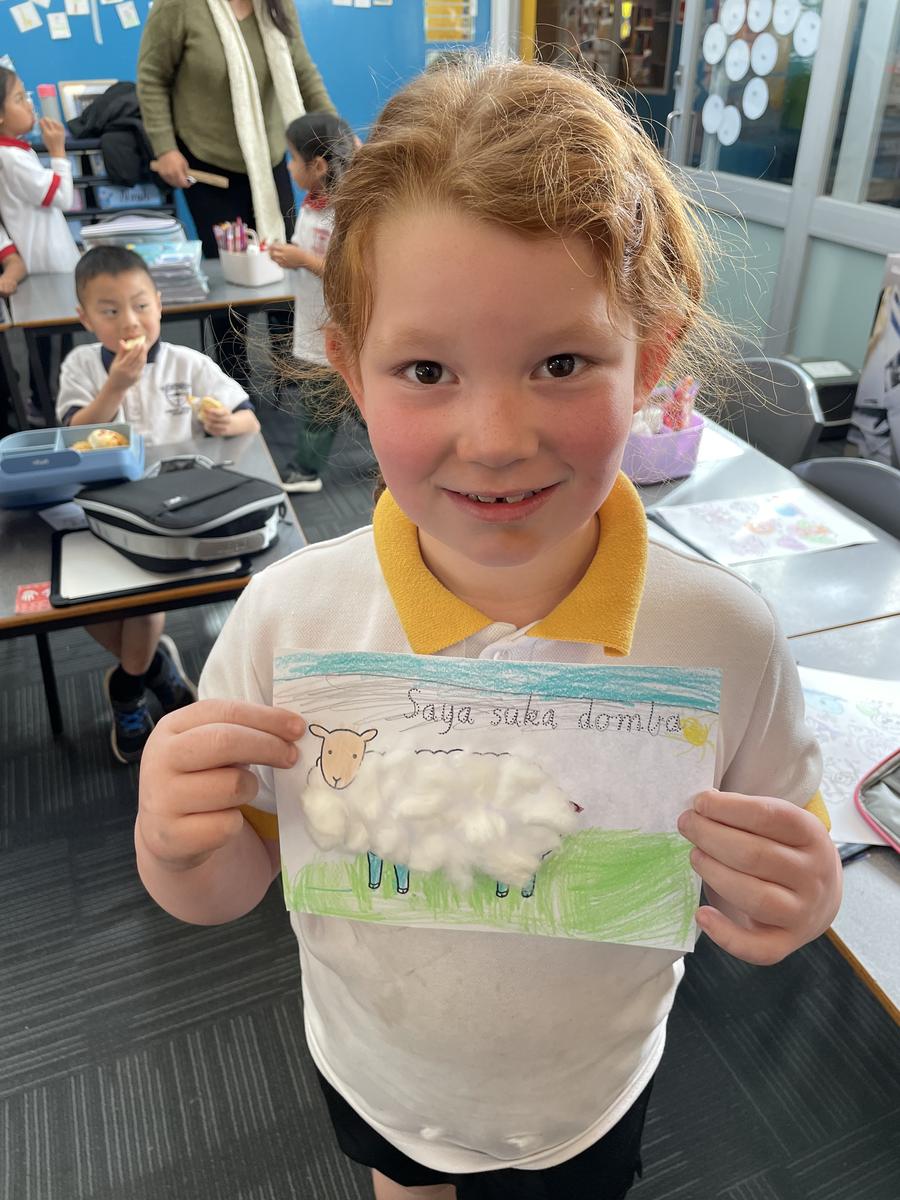 Saya suka domba